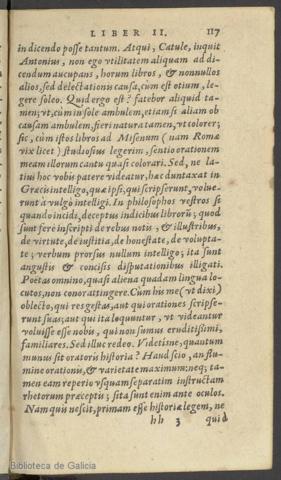 LIBER II. 117
in dicendo posse tantum. Atqui, Catule, inquit
Antonius, non ego vtilitatem aliquam ad di-
cendum aucupans, horum libros, & nonnullos
alios, sed delectationis causa, cùm est otium, le-
gere soleo. Quid ergo est? fatebor aliquid ta-
men; vt, cùm in sole ambulem, etiam si aliam ob
causam ambulem, fieri natura tamen, vt colorer;
sic, cùm istos libros ad Misenum (nam Romæ
vix licet) studiosius legerim, sentio orationem
meam illorum cantu quasi colorari. Sed, ne la-
tius hoc vobis patere videatur, hæc duntaxat in
Græcis intelligo, quæ ipsi, qui scripserunt, volue-
runt à vulgo intelligi. In philosophos vestros si
quando incidi, deceptus indicibus librorũ; quod
sunt ferè inscripti de rebus notis, & illustribus,
de virtute, de iustitia, de honestate, de volupta-
te; verbum prorsus nullum intelligo; ita sunt
angustis & concisis disputationibus illigati.
Poëtas omnino, quasi aliena quadam lingua lo-
cutos, non conor attingere. Cum his me (vt dixi)
oblecto, qui res gestas, aut qui orationes scripse-
runt suas; aut qui ita loquuntur, vt videantur
voluisse esse nobis, qui non sumus eruditissimi,
familiares. Sed illuc redeo. Videtisne, quantum
munus sit oratoris historia? Haud scio, an flu-
mine orationis, & varietate maximum: neq; ta-
men eam reperio vsquam separatim instructam
rhetorum præceptis; sita sunt enim ante oculos.
Nam quis nescit, primam esse historiæ legem, ne
hh 3 quid
Biblioteca de Galicia